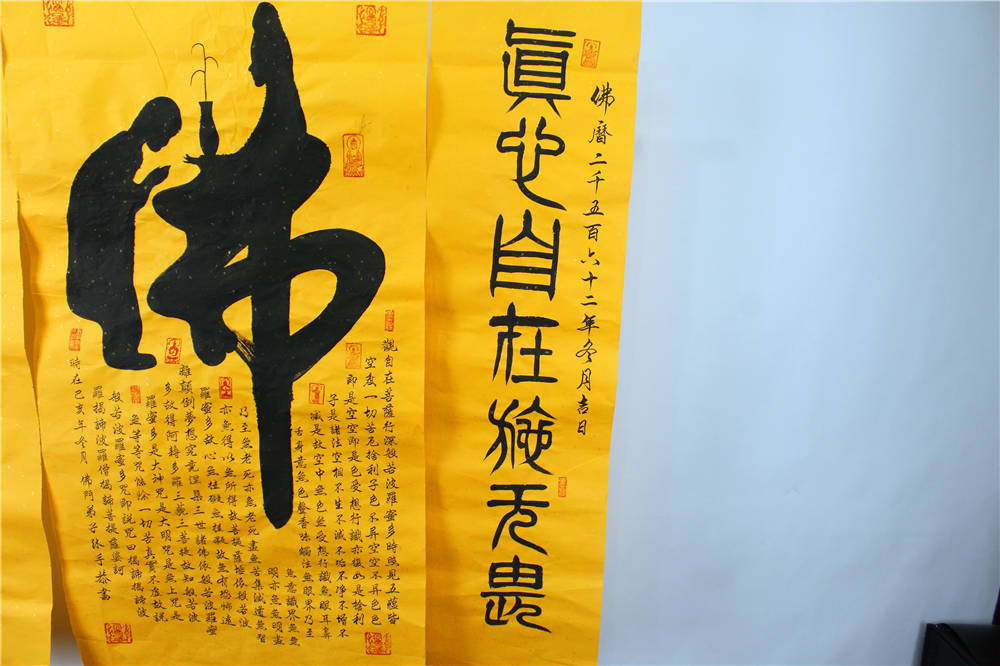 佛曆二千五百六十二年冬月吉日
眞心自在施无畏
佛
觀自在菩薩行深般若波羅蜜多時照見五蘊皆
空度一切苦厄捨利子色不异空空不异色色
即是空空即是色受想行識亦復如是捨利
子是諸法空相不生不滅不垢不净不增不
減是故空中無色無受想行識無眼耳鼻
舌身意無色聲香味觸法無眼界乃至
無意識界無無
明亦無無明盡
乃至無老死亦無老死盡無苦集滅道無智
亦無得以無所得故菩提薩埵依般若波
羅蜜多故心無挂礙無挂礙故無有恐怖遠
離顛倒夢想究竟涅槃三世諸佛依般若波羅蜜
多故得阿耨多羅三藐三菩提故知般若波
羅蜜多是大神咒是大明咒是無上咒是
無等等咒能除一切苦真實不虛故說
般若波羅蜜多咒即說咒曰揭諦揭諦波
羅揭諦波羅僧揭諦菩提薩婆訶
時在己亥年冬月 佛門弟子